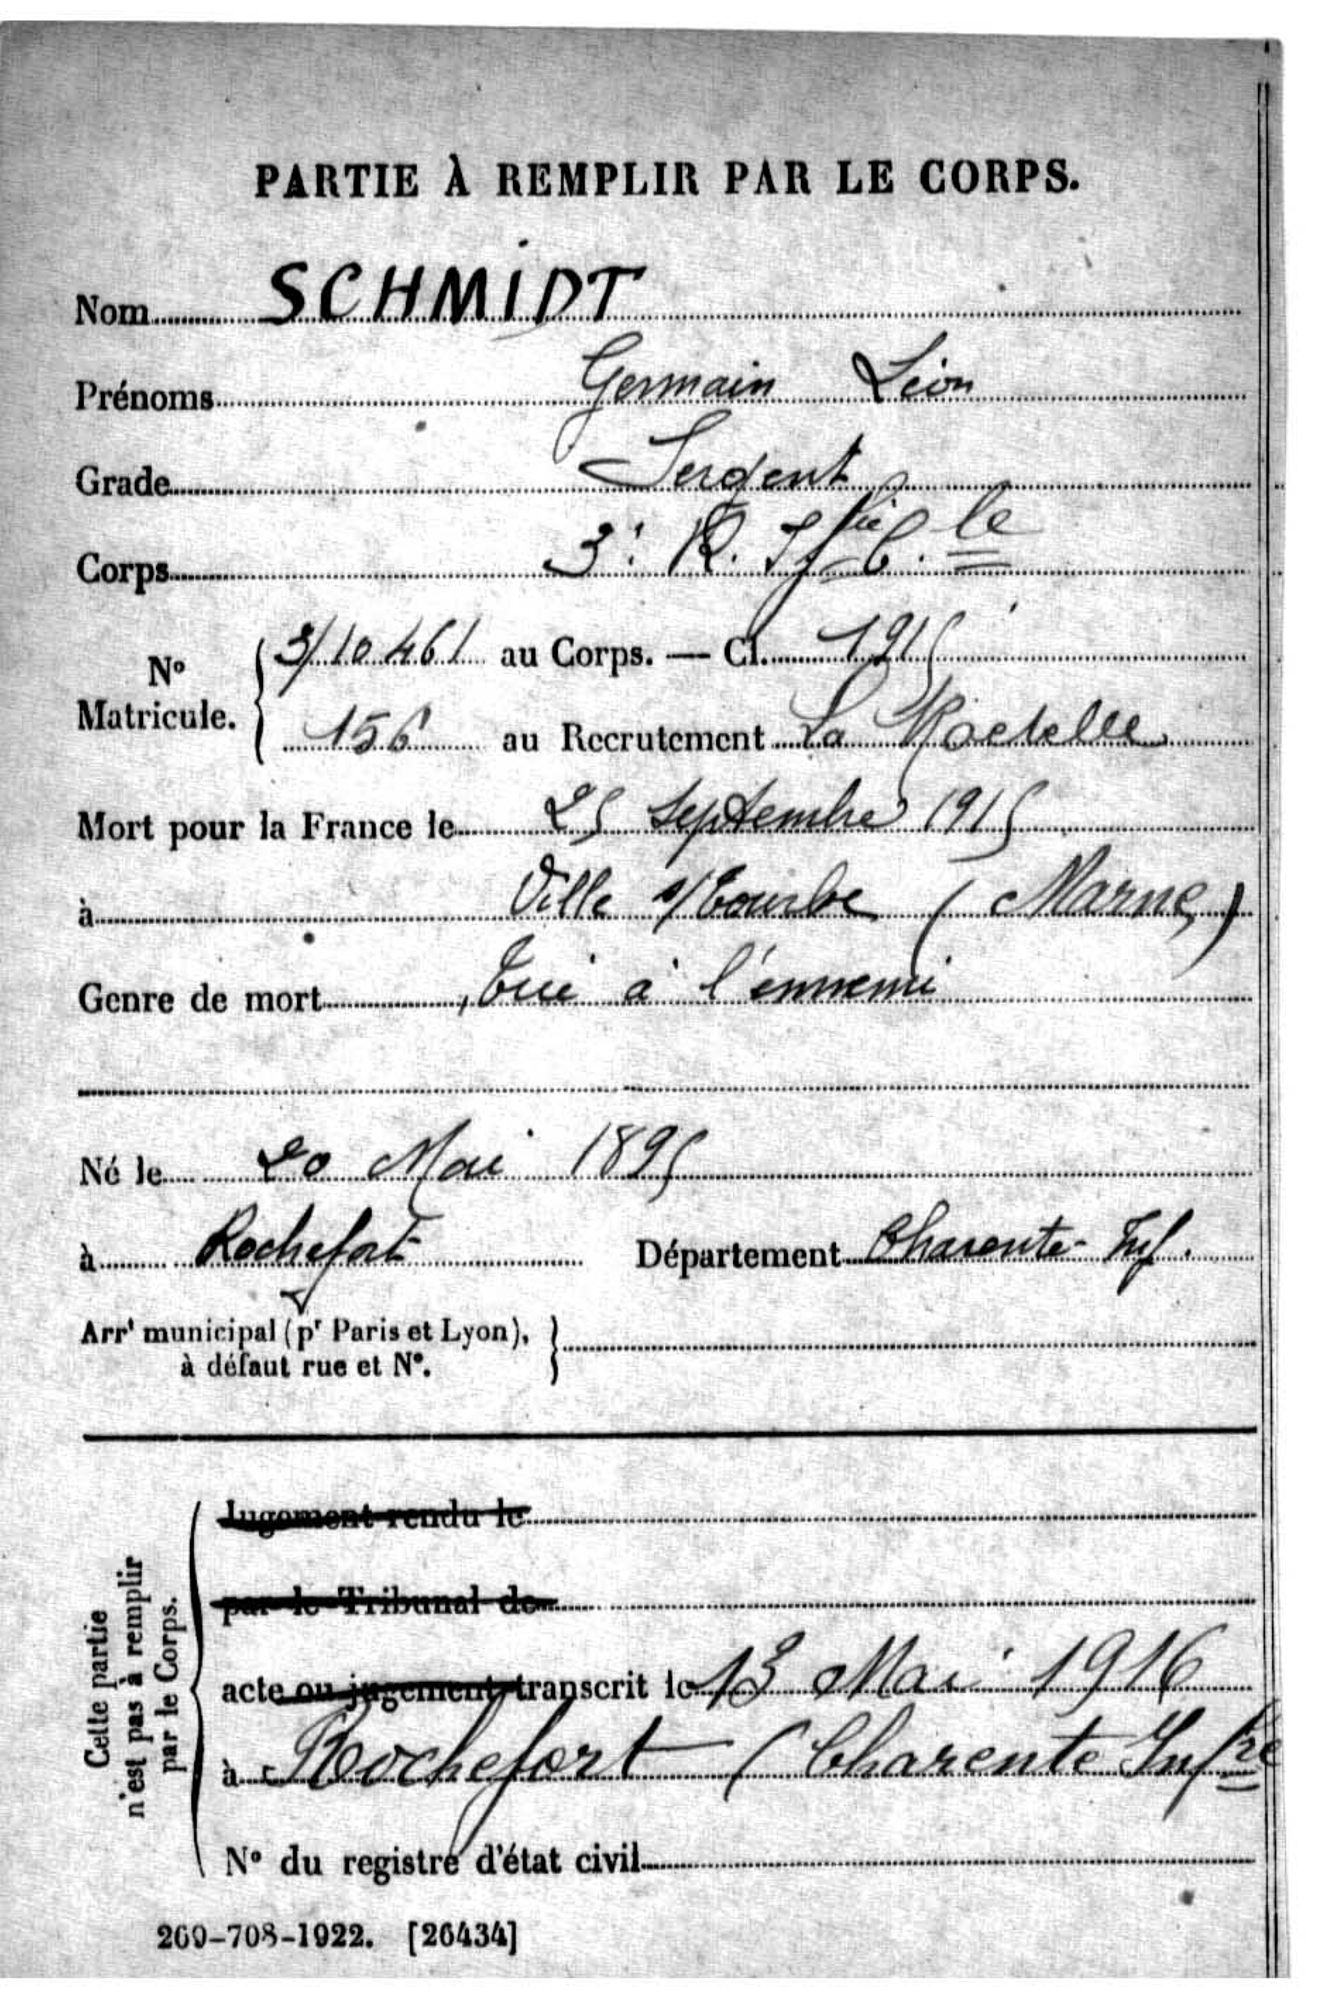 PARTIE À REMPLIR PAR LE CORPS.
Nom SCHMIDT
Prénoms Germain Léon
Grade Sergent
Corps 3e R. Ifrie C.le
N° Matricule. 3/10 461 au Corps. — Cl. 1915
156 au Recrutement La Rochelle
Mort pour la France le 25 Septembre 1915
à Ville s/ Tourbe (Marne)
Genre de mort Tué à l'ennemi
Né le 20 Mai 1895
à Rochefort Département Charente-Inf.
Arrt municipal (pr Paris et Lyon),
à défaut rue et N°.
Cette partie
n'est pas à remplir
par le Corps.
Jugement rendu le
par le Tribunal de
acte ou jugement transcrit le 13 Mai 1916
à Rochefort (Charente Infre
N° du registre d'état civil
269-708-1922. [26434]